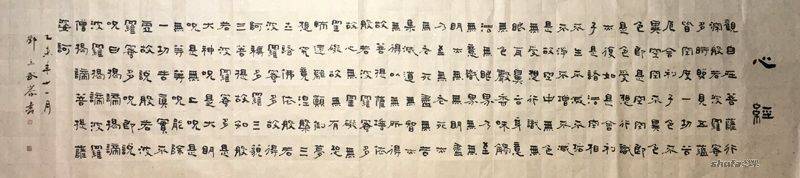 心經
觀自在菩薩行
深般若波羅蜜
多時照見五蘊
皆空度一切苦
厄舍利子色不
異空空不異色
色即是空空即
是色受想行識
亦復如是舍利
子是諸法空相
不生不滅不垢
不淨不增不減
是故空中無色
無受想行識無
眼耳鼻舌身意
無色聲香味觸
法無眼界乃至
無意識界無無
明亦無無明盡
乃至無老死亦
無老死盡無苦
集滅道無智亦
無得以無所得
故菩提薩埵依
般若波羅蜜多
故心無罣礙無
罣礙故無有恐
怖遠離顛倒夢
想究竟涅槃三
世諸佛依般若
波羅蜜多故得
阿耨多羅三藐
三菩提故知般
若波羅蜜多是
大神咒是大明
咒是無上咒是
無等等咒能除
一切苦真實不
虛故說般若波
羅蜜多呪即說
呪曰揭諦揭諦
波羅揭諦波羅
僧揭諦菩提薩
婆訶
乙未年十一月